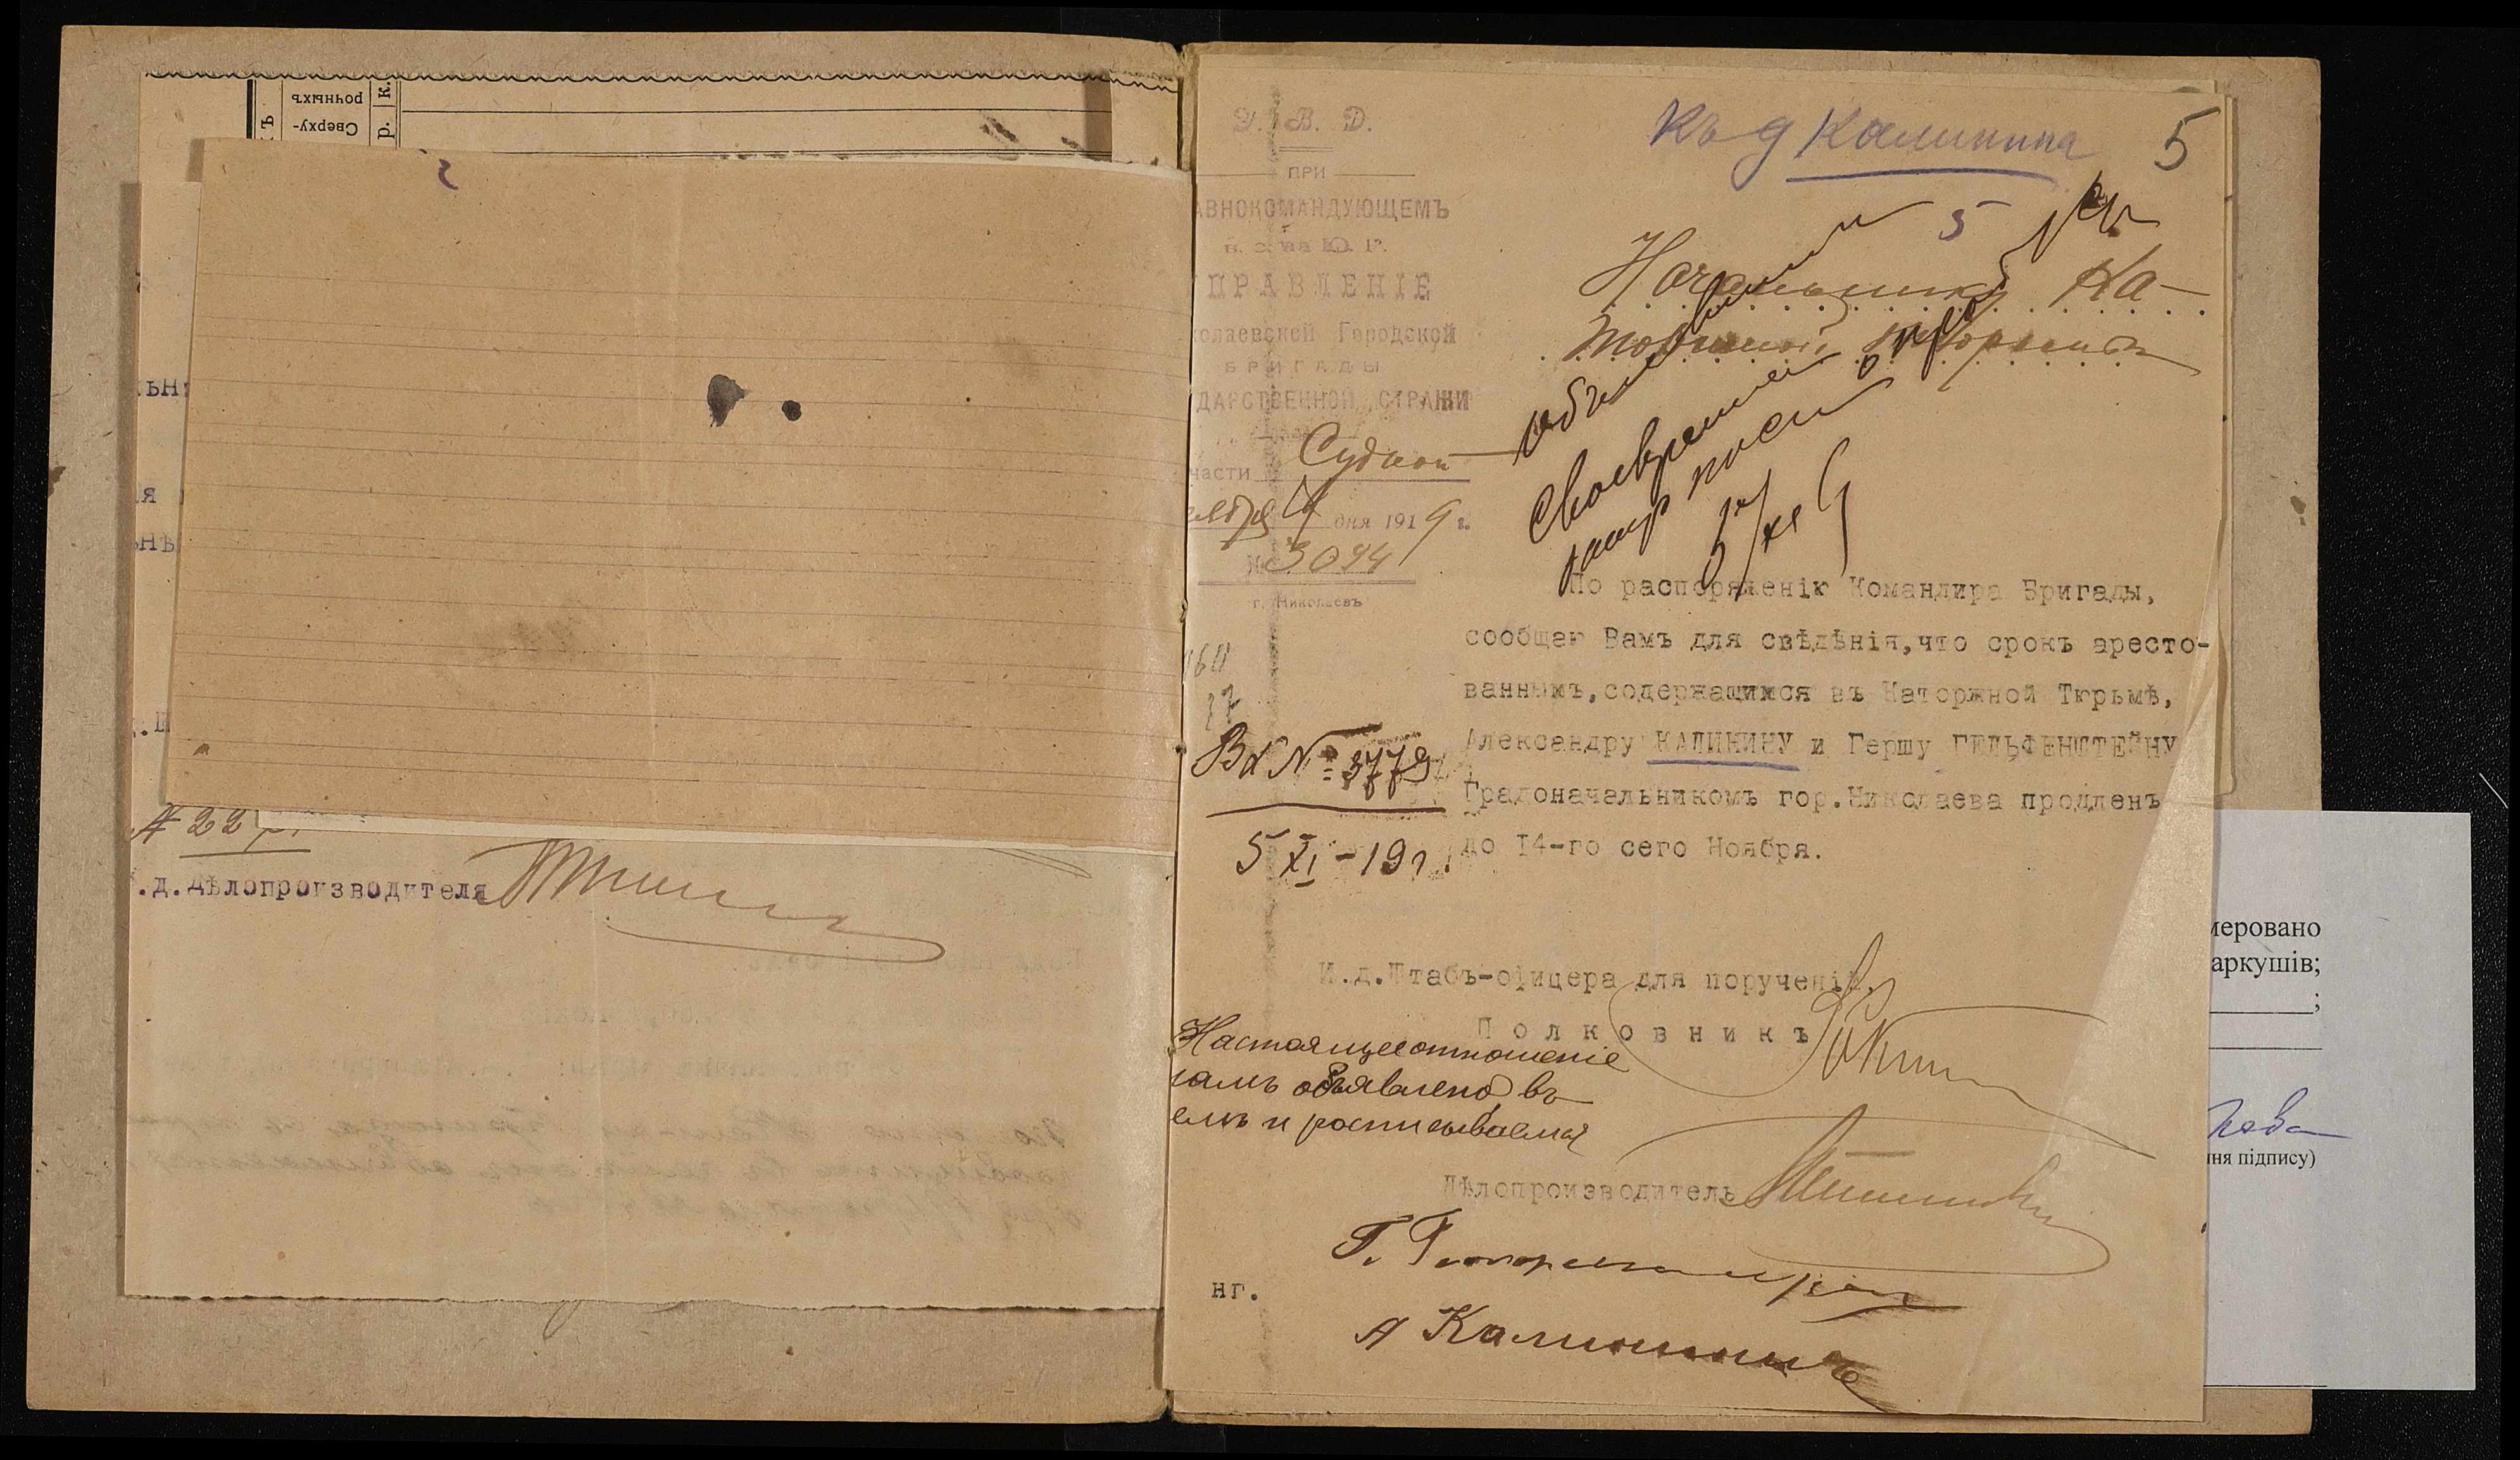 рочныхъ
Сверху-
р.
к.
ъ
ьн
я
нѣ
.д.Дѣлопроизводителя
Къ д Калинина
5
5
Д. В. Д.
ПРИ
АВНОКОМАНДУЮЩЕМЪ
В. С. на Ю. Р.
ПРАВЛЕНІЕ
колаевской Городской
БРИГАДЫ
ДАРСТВЕННОЙ СТРАЖИ
части Судной
ября 4 дня 1919 г.
№ 3094
г. Николаевъ
Начальнику Ка-
торжной тюрьмы
объявить
Своевременно
5/XI
По распоряженію Командира Бригады,
сообщаю Вамъ для свѣдѣнія,что срокъ аресто-
ваннымъ,содержащимся въ Каторжной Тюрьмѣ,
Александру КАЛИНИНУ и Гершу ГЕЛЬФЕНШТЕЙНУ
Градоначальникомъ гор.Николаева продленъ
до 14-го сего Ноября.
Вх № 3779
5 XI - 19 г.
И.д.Штабъ-офицера для порученій,
Полковникъ
Настоящее отношеніе
намъ объявлено въ
чемъ и росписываемся
Дѣлопроизводитель
Г.
А Калининъ
нг.
меровано
аркушів;
;
ння підпису)